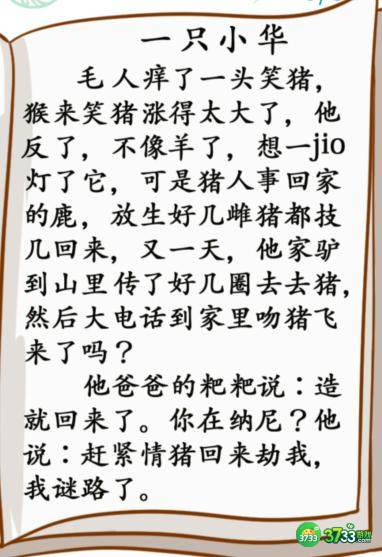 一只小华
毛人痒了一头笑猪，
猴来笑猪涨得太大了，他
反了，不像羊了，想一jio
灯了它，可是猪人事回家
的鹿，放生好几雌猪都技
几回来，又一天，他家驴
到山里传了好几圈去去猪，
然后大电话到家里吻猪飞
来了吗？
他爸爸的粑粑说：造
就回来了。你在纳尼？他
说：赶紧情猪回来劫我，
我谜路了。
3733
3733游戏